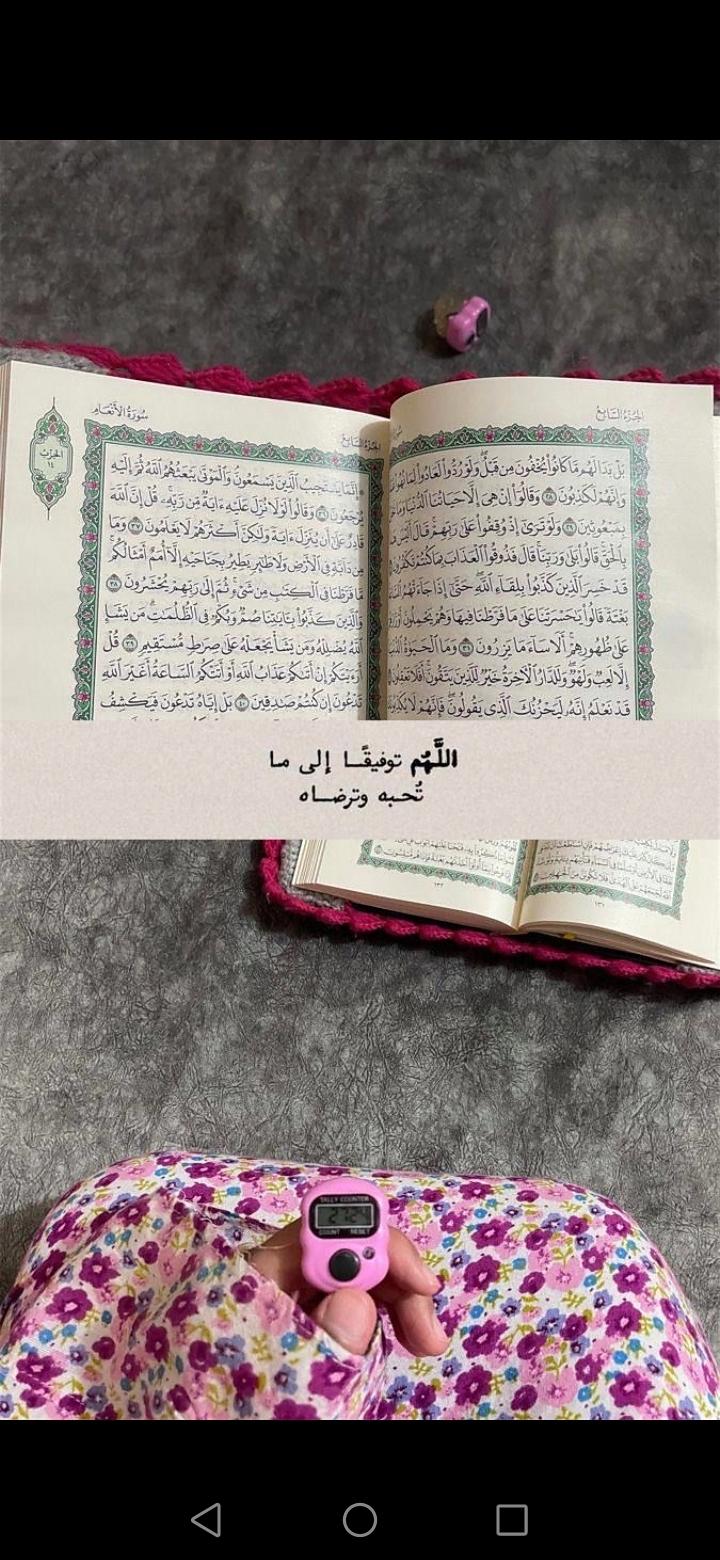 الجزء السابع
بَلْ بَدَا لَهُم مَّا كَانُوا۟ يُخْفُونَ مِن قَبْلُ وَلَوْ رُدُّوا۟ لَعَادُوا۟ لِمَا نُهُوا۟
وَإِنَّهُمْ لَكَٰذِبُونَ ٢٨ وَقَالُوٓا۟ إِنْ هِىَ إِلَّا حَيَاتُنَا ٱلدُّنْيَا وَمَا
بِمَبْعُوثِينَ ٢٩ وَلَوْ تَرَىٰٓ إِذْ وُقِفُوا۟ عَلَىٰ رَبِّهِمْ قَالَ أَلَيْسَ
بِٱلْحَقِّ قَالُوا۟ بَلَىٰ وَرَبِّنَا قَالَ فَذُوقُوا۟ ٱلْعَذَابَ بِمَا كُنتُمْ تَكْفُرُونَ
قَدْ خَسِرَ ٱلَّذِينَ كَذَّبُوا۟ بِلِقَآءِ ٱللَّهِ حَتَّىٰٓ إِذَا جَآءَتْهُمُ
بَغْتَةً قَالُوا۟ يَٰحَسْرَتَنَا عَلَىٰ مَا فَرَّطْنَا فِيهَا وَهُمْ يَحْمِلُونَ
عَلَىٰ ظُهُورِهِمْ أَلَا سَآءَ مَا يَزِرُونَ ٣١ وَمَا ٱلْحَيَوٰةُ
إِلَّا لَعِبٌ وَلَهْوٌ وَلَلدَّارُ ٱلْءَاخِرَةُ خَيْرٌ لِّلَّذِينَ يَتَّقُونَ أَفَلَا تَعْقِلُونَ
قَدْ نَعْلَمُ إِنَّهُۥ لَيَحْزُنُكَ ٱلَّذِى يَقُولُونَ فَإِنَّهُمْ لَا
الجزء السابع
سورة الأنعام
الحزب
١٤
إِنَّمَا يَسْتَجِيبُ ٱلَّذِينَ يَسْمَعُونَ وَٱلْمَوْتَىٰ يَبْعَثُهُمُ ٱللَّهُ ثُمَّ إِلَيْهِ
يُرْجَعُونَ ٣٦ وَقَالُوا۟ لَوْلَا نُزِّلَ عَلَيْهِ ءَايَةٌ مِّن رَّبِّهِۦ قُلْ إِنَّ ٱللَّهَ
قَادِرٌ عَلَىٰٓ أَن يُنَزِّلَ ءَايَةً وَلَٰكِنَّ أَكْثَرَهُمْ لَا يَعْلَمُونَ ٣٧ وَمَا
مِن دَآبَّةٍ فِى ٱلْأَرْضِ وَلَا طَٰٓئِرٍ يَطِيرُ بِجَنَاحَيْهِ إِلَّآ أُمَمٌ أَمْثَالُكُم
مَّا فَرَّطْنَا فِى ٱلْكِتَٰبِ مِن شَىْءٍ ثُمَّ إِلَىٰ رَبِّهِمْ يُحْشَرُونَ ٣٨
وَٱلَّذِينَ كَذَّبُوا۟ بِـَٔايَٰتِنَا صُمٌّ وَبُكْمٌ فِى ٱلظُّلُمَٰتِ مَن يَشَإِ
ٱللَّهُ يُضْلِلْهُ وَمَن يَشَأْ يَجْعَلْهُ عَلَىٰ صِرَٰطٍ مُّسْتَقِيمٍ ٣٩ قُلْ
أَرَءَيْتَكُمْ إِنْ أَتَىٰكُمْ عَذَابُ ٱللَّهِ أَوْ أَتَتْكُمُ ٱلسَّاعَةُ أَغَيْرَ ٱللَّهِ
تَدْعُونَ إِن كُنتُمْ صَٰدِقِينَ ٤٠ بَلْ إِيَّاهُ تَدْعُونَ فَيَكْشِفُ
اللَّهُم توفيقًا إلى ما
تُحبه وترضاه
١٣١
١٣٢
TALLY COUNTER
COUNT RESET